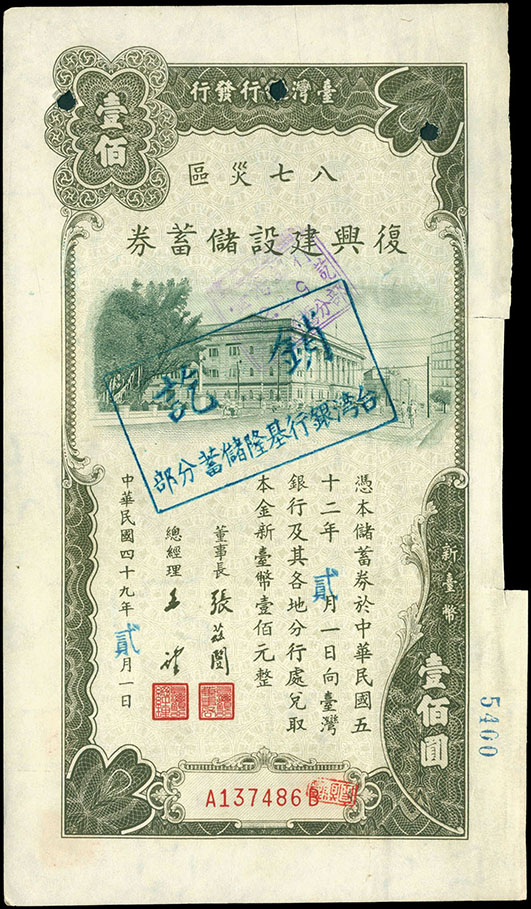 臺灣銀行發行
壹佰
八七災區
復興建設儲蓄券
銷訖
台湾銀行基隆儲蓄分部
憑本儲蓄券於中華民國五
十二年貳月一日向臺灣
銀行及其各地分行處兌取
本金新臺幣壹佰元整
董事長 張茲闓
總經理
中華民國四十九年貳月一日
新臺幣
壹佰圓
5460
A137486B